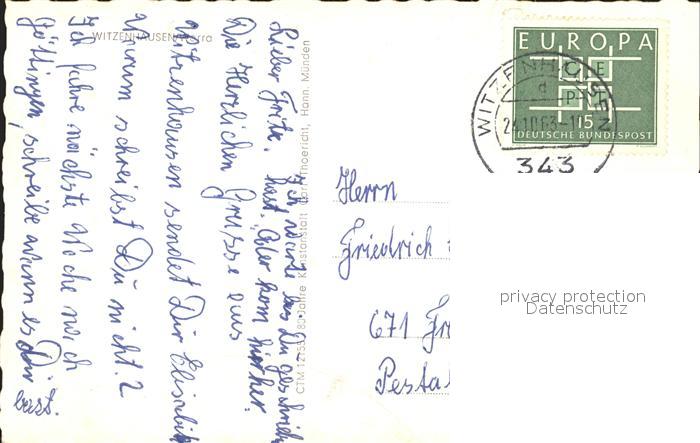 WITZENHAUSEN/Werra
Lieber Fritz.
Die Herzlichen Grüsse aus
Witzenhausen sendet Dir Elisabeth
Warum schreibst Du nicht?
Ich fahre nächste Woche nach
Göttingen, schreibe wenn es Dir
passt.
Ich warte bis Du geschrieben
hast. Oder komm hierher.
80 Jahre Kunstanstalt Hann. Münden
EUROPA
CEPT
15
DEUTSCHE BUNDESPOST
WITZENHAUSEN
d
24.10.63-1
343
Herrn
Friedrich
671 Fr
Pesta
privacy protection
Datenschutz